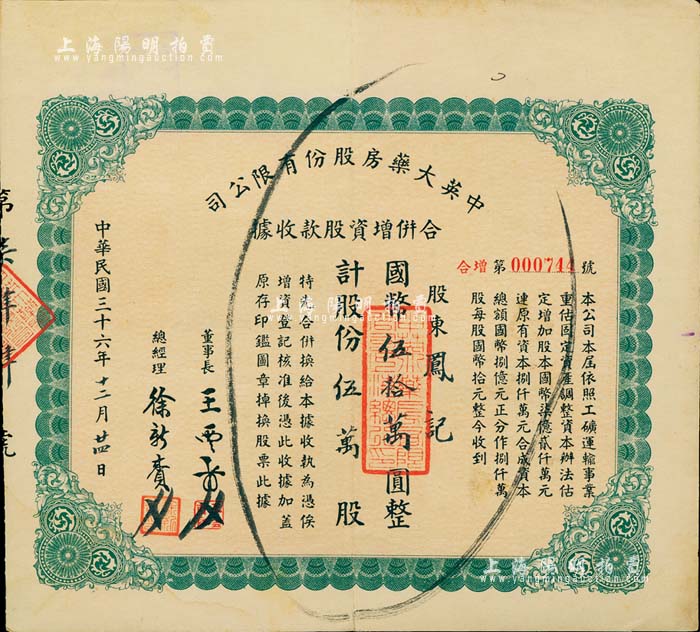 上海陽明拍賣
www.yangmingauction.com
中英大藥房股份有限公司
合併增資股款收據
合增第000744號
本公司本屆依照工礦運輸事業
重估固定資產調整資本辦法估
定增加股本國幣柒億貳仟萬元
連原有資本捌仟萬元合成資本
總額國幣捌億元正分作捌仟萬
股每股國幣拾元整今收到
股東鳳記
國幣伍拾萬圓整
計股份伍萬股
特先合併換給本據收執為憑俟
增資登記核准後憑此收據加蓋
原存印鑑圖章掉換股票此據
董事長
總經理 徐新賡
中華民國三十六年十二月廿四日
第
上海陽明拍賣
www.yangmingauction.com